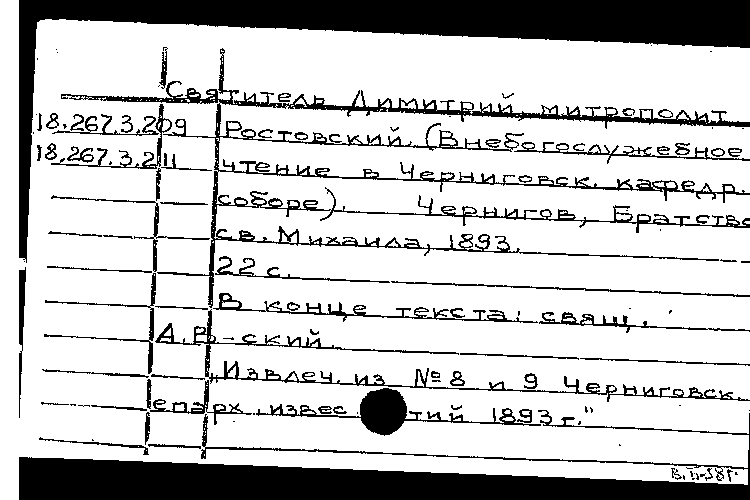 Святитель Димитрий, митрополит
18.267.3.209 Ростовский. (Внебогослужебное
18.267.3.211 чтение в Черниговск. кафедр.
соборе). Чернигов, Братство
св. Михаила, 1893.
22 с.
В конце текста: свящ.
А.В-ский.
„Извлеч. из №8 и 9 Черниговск.
епарх. известий 1893 г."